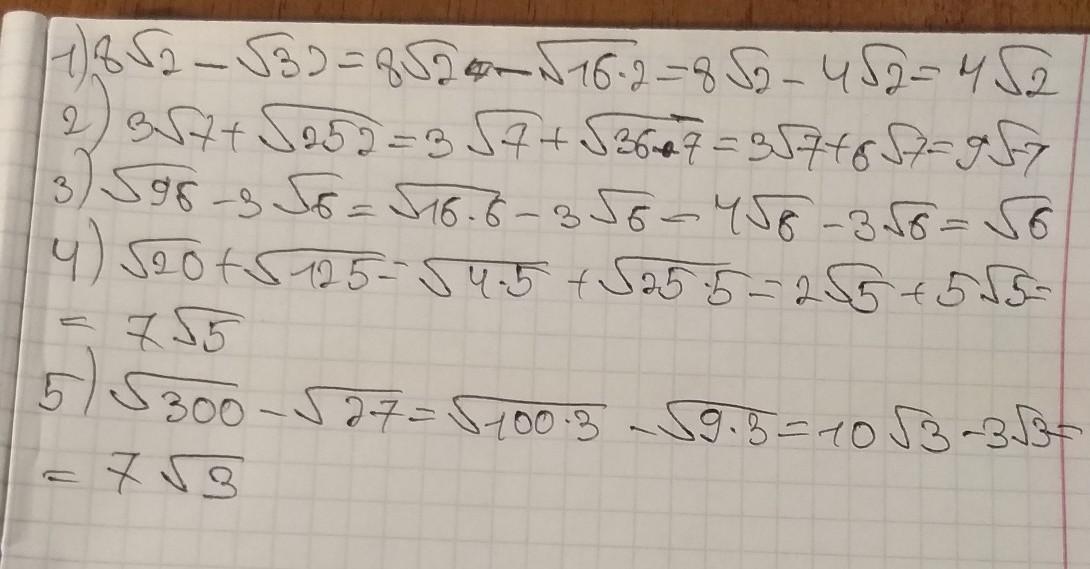 1) 8√2 - √32 = 8√2 - √16·2 = 8√2 - 4√2 = 4√2
2) 3√7 + √252 = 3√7 + √36·7 = 3√7 + 6√7 = 9√7
3) √96 - 3√6 = √16·6 - 3√6 - 4√6 - 3√6 = √6
4) √20 + √125 = √4·5 + √25·5 = 2√5 + 5√5 =
= 7√5
5) √300 - √27 = √100·3 - √9·3 = 10√3 - 3√3 =
= 7√3